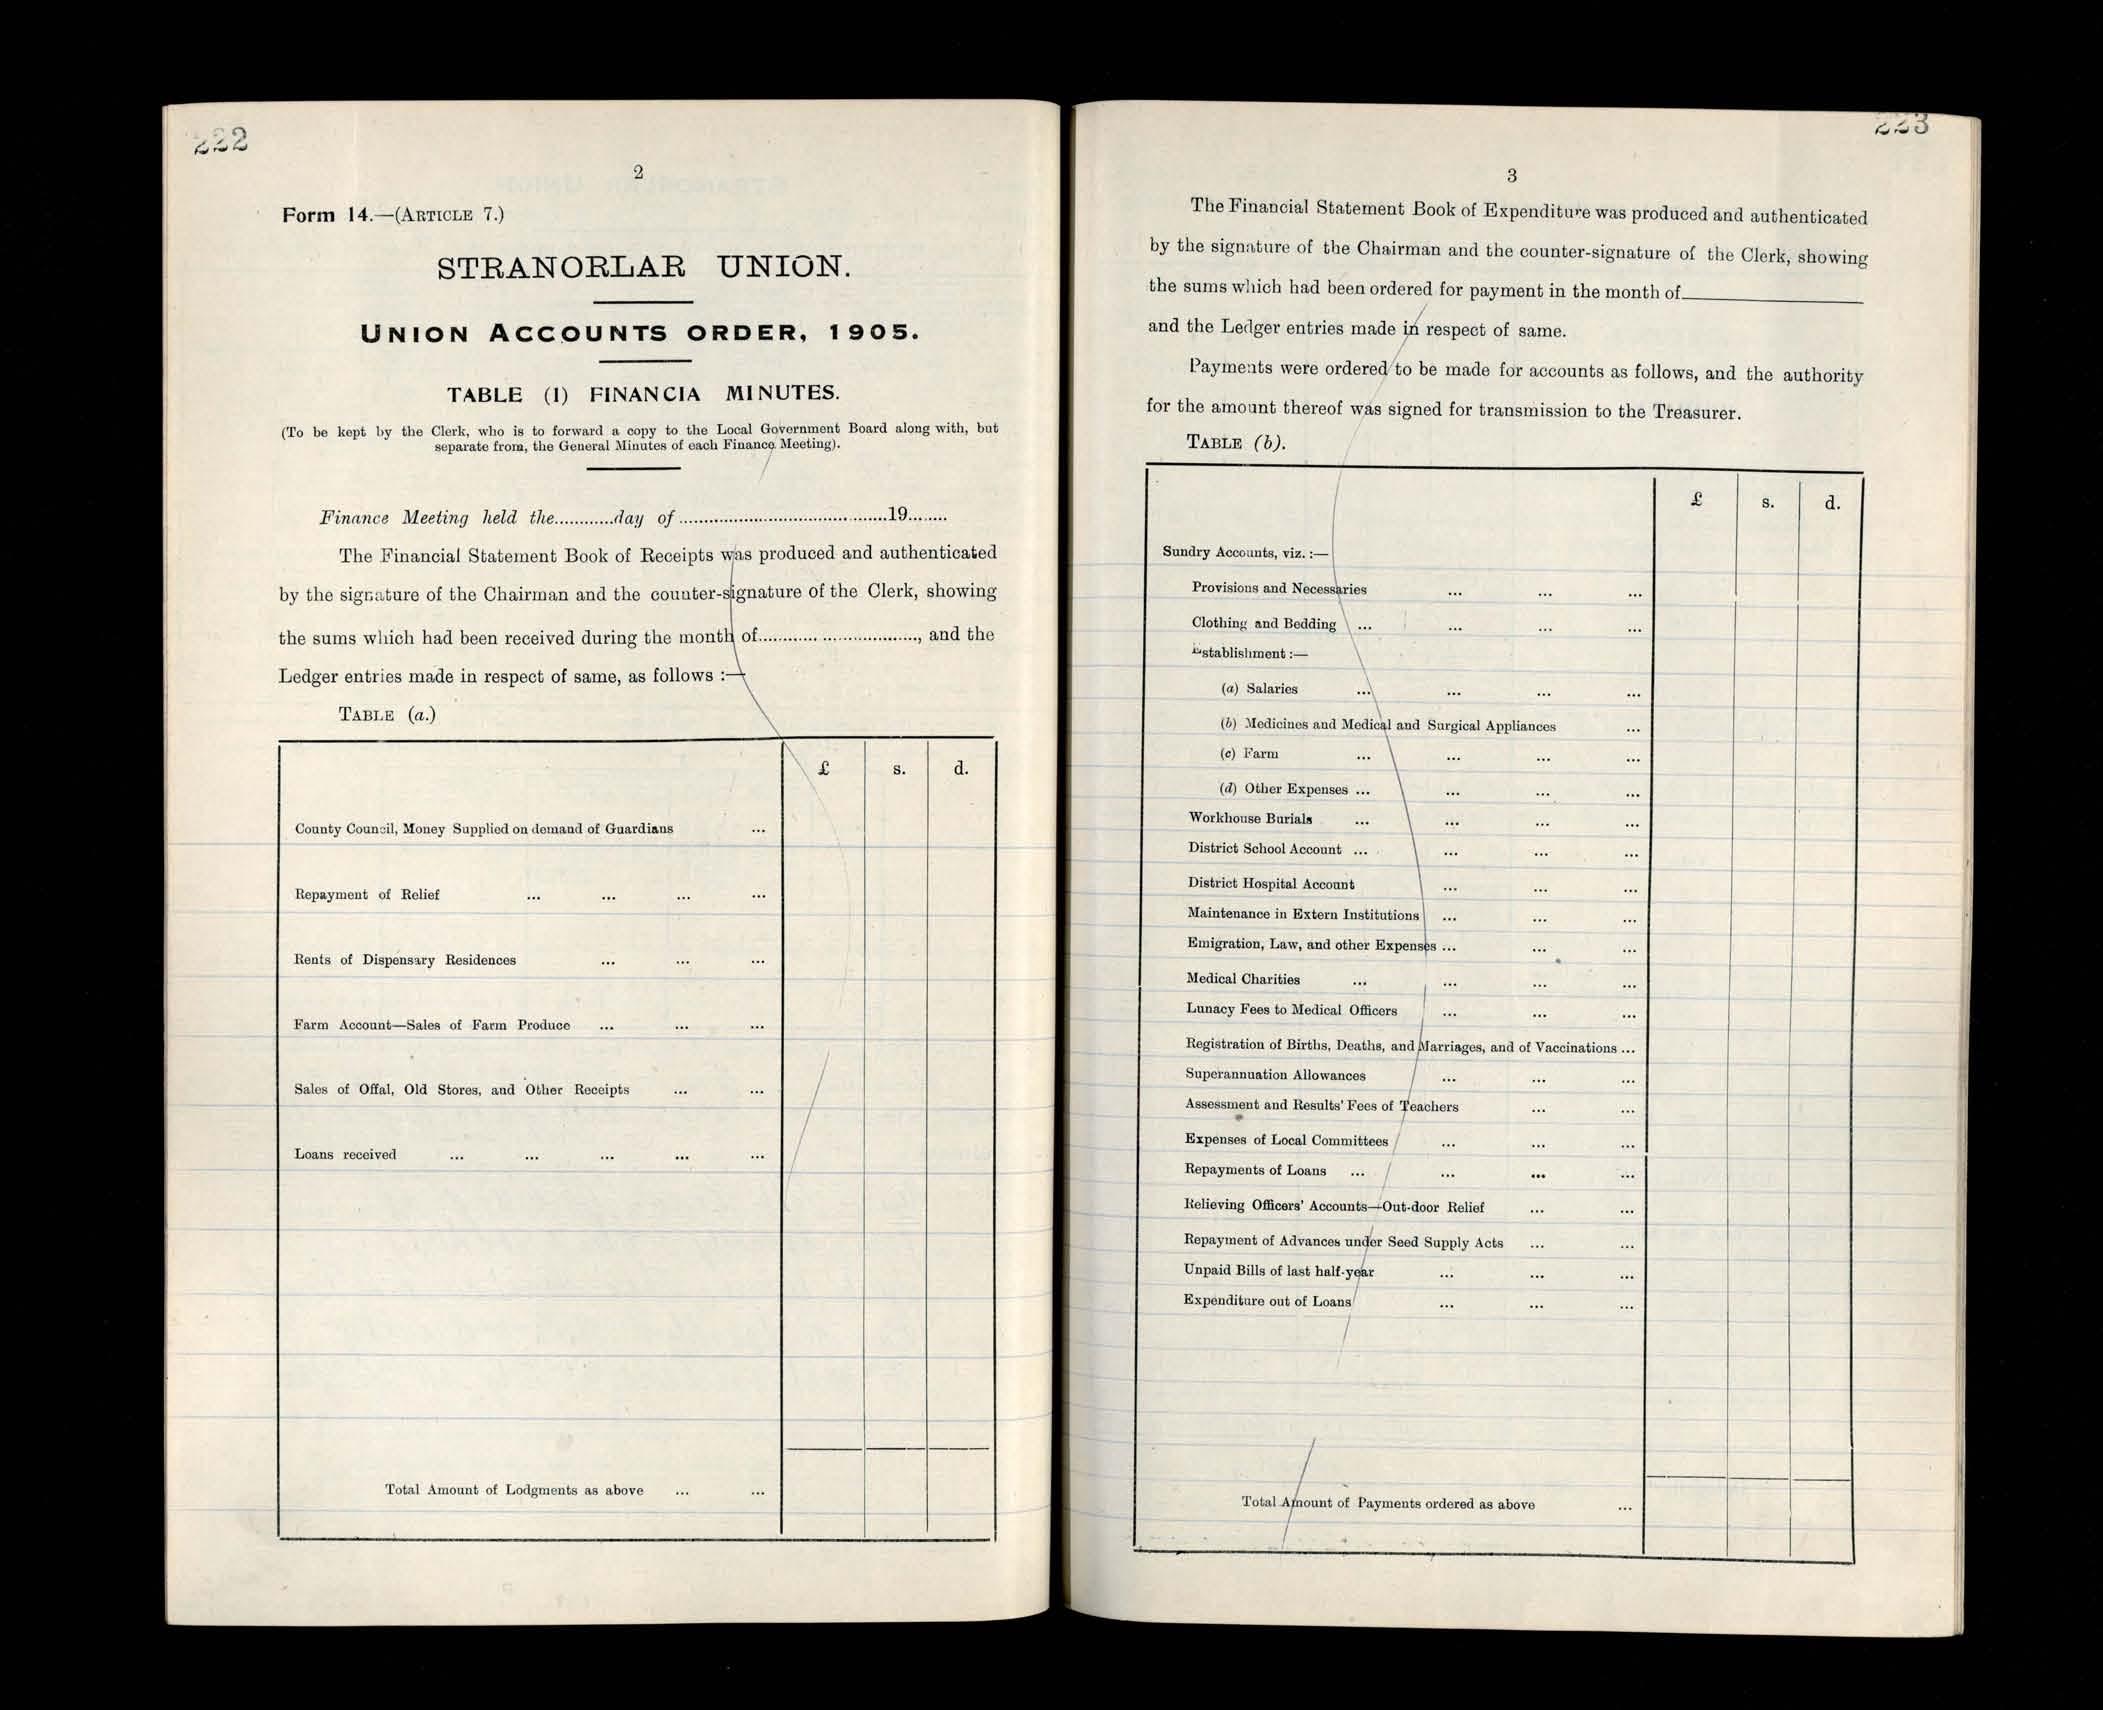 222
2
Form 14.—(ARTICLE 7.)
STRANORLAR UNION.
UNION ACCOUNTS ORDER, 1905.
TABLE (1) FINANCIA MINUTES.
(To be kept by the Clerk, who is to forward a copy to the Local Government Board along with, but
separate from, the General Minutes of each Finance Meeting).
Finance Meeting held the............day of ..........................................19........
The Financial Statement Book of Receipts was produced and authenticated
by the signature of the Chairman and the counter-signature of the Clerk, showing
the sums which had been received during the month of..................................., and the
Ledger entries made in respect of same, as follows :—
TABLE (a.)
£ s. d.
County Council, Money Supplied on demand of Guardians ...
Repayment of Relief ... ... ... ...
Rents of Dispensary Residences ... ... ...
Farm Account—Sales of Farm Produce ... ... ...
Sales of Offal, Old Stores, and Other Receipts ... ...
Loans received ... ... ... ... ...
Total Amount of Lodgments as above ... ...
223
3
The Financial Statement Book of Expenditure was produced and authenticated
by the signature of the Chairman and the counter-signature of the Clerk, showing
the sums which had been ordered for payment in the month of____________
and the Ledger entries made in respect of same.
Payments were ordered to be made for accounts as follows, and the authority
for the amount thereof was signed for transmission to the Treasurer.
TABLE (b).
£ s. d.
Sundry Accounts, viz. :—
Provisions and Necessaries ... ... ...
Clothing and Bedding ... ... ... ...
Establishment :—
(a) Salaries ... ... ... ...
(b) Medicines and Medical and Surgical Appliances ...
(c) Farm ... ... ... ...
(d) Other Expenses ... ... ... ...
Workhouse Burials ... ... ... ...
District School Account ... ... ... ...
District Hospital Account ... ... ...
Maintenance in Extern Institutions ... ... ...
Emigration, Law, and other Expenses ... ... ...
Medical Charities ... ... ... ...
Lunacy Fees to Medical Officers ... ... ...
Registration of Births, Deaths, and Marriages, and of Vaccinations ...
Superannuation Allowances ... ... ...
Assessment and Results' Fees of Teachers ... ...
Expenses of Local Committees ... ... ...
Repayments of Loans ... ... ... ...
Relieving Officers' Accounts—Out-door Relief ... ...
Repayment of Advances under Seed Supply Acts ... ...
Unpaid Bills of last half-year ... ... ...
Expenditure out of Loans ... ... ...
Total Amount of Payments ordered as above ...